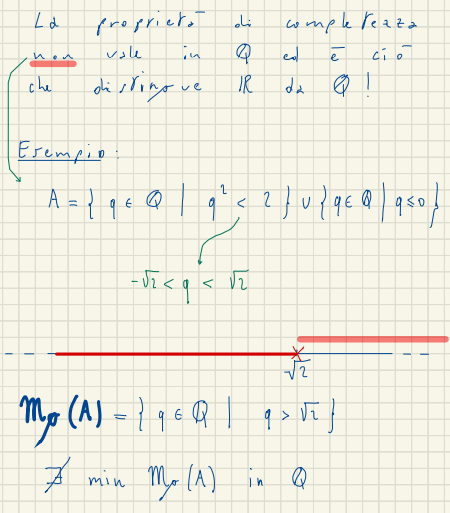 La proprietà di completezza
non vale in Q ed è ciò
che distingue R da Q!
Esempio:
A = { q ∈ Q | q² < 2 } ∪ { q ∈ Q | q ≤ 0 }
-√2 < q < √2
√2
M (A) = { q ∈ Q | q > √2 }
∄ min M (A) in Q